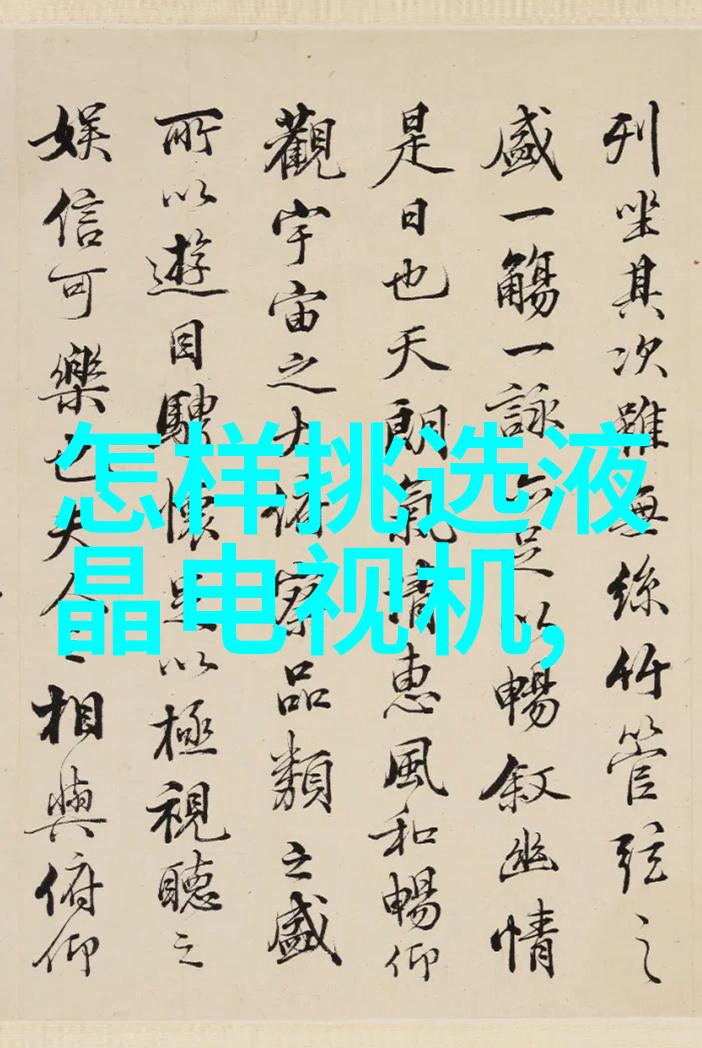 列坐其次雖無絲竹管弦之
盛一觴一詠亦足以暢敘幽情
是日也天朗氣清惠風和暢仰
觀宇宙之大俯察品類之盛
所以遊目騁懷足以極視聽之
娛信可樂也夫人之相與俯仰
怎样挑选液
晶电视机,